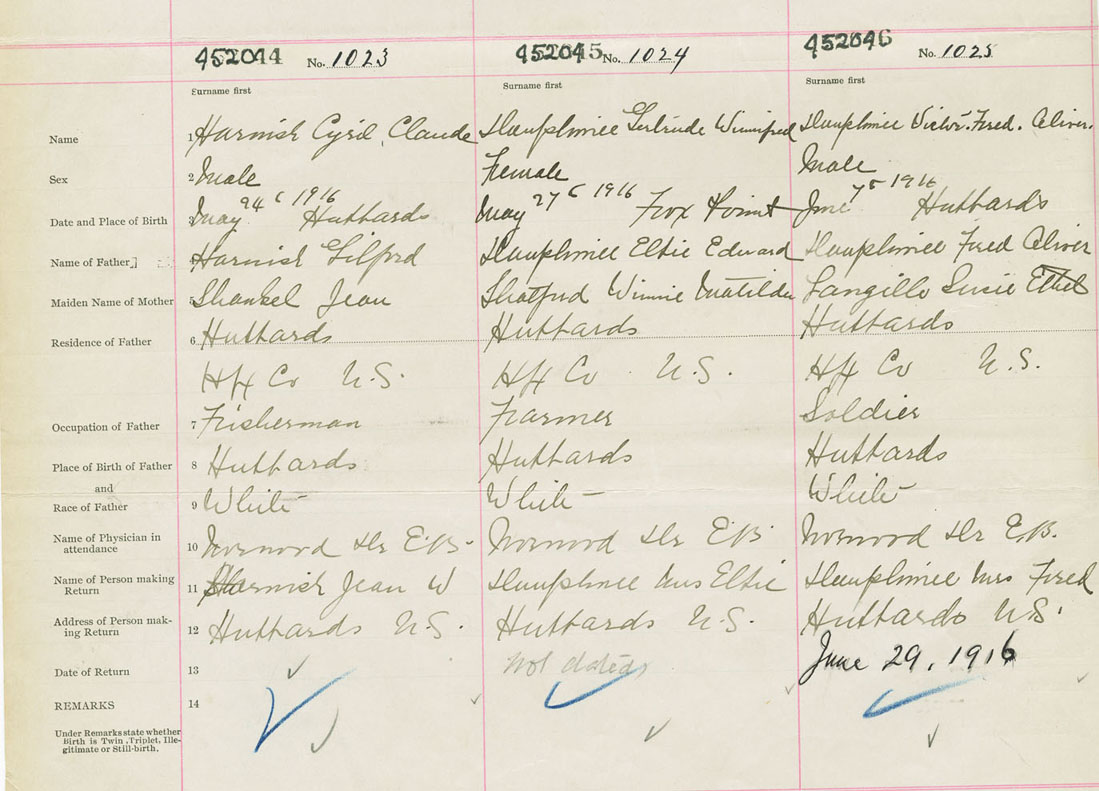 452044 No. 1023 452045 No. 1024 452046 No. 1025
Surname first Surname first Surname first
Name 1 Harnish Cyril, Claude Dauphinee Gertrude Winnifred Dauphinee Victor. Fred. Oliver.
Sex 2 Male Female Male
Date and Place of Birth 3 May 1916 Hubbards May 27 1916 Fox Point June 7 1916 Hubbards
Name of Father 4 Harnish Gilford Dauphinee Edward Dauphinee Fred Oliver
Maiden Name of Mother 5 Shankel Jean Shatford Winnie Matilda Langille Susie Ethel
Residence of Father 6 Hubbards Hubbards Hubbards
Hfx Co N.S. Hfx Co N.S. Hfx Co N.S.
Occupation of Father 7 Fisherman Farmer Soldier
Place of Birth of Father 8 Hubbards Hubbards Hubbards
and
Race of Father 9 White White White
Name of Physician in
attendance 10 Norwood Dr E.B. Norwood Dr E.B Norwood Dr E.B.
Name of Person making
Return 11 Harnish Jean W Dauphinee Mrs Dauphinee Mrs Fred
Address of Person mak-
ing Return 12 Hubbards N.S. Hubbards N.S. Hubbards N.S.
Date of Return 13 Not dated June 29, 1916
REMARKS 14
Under Remarks state whether
Birth is Twin, Triplet, Ille-
gitimate or Still-birth.